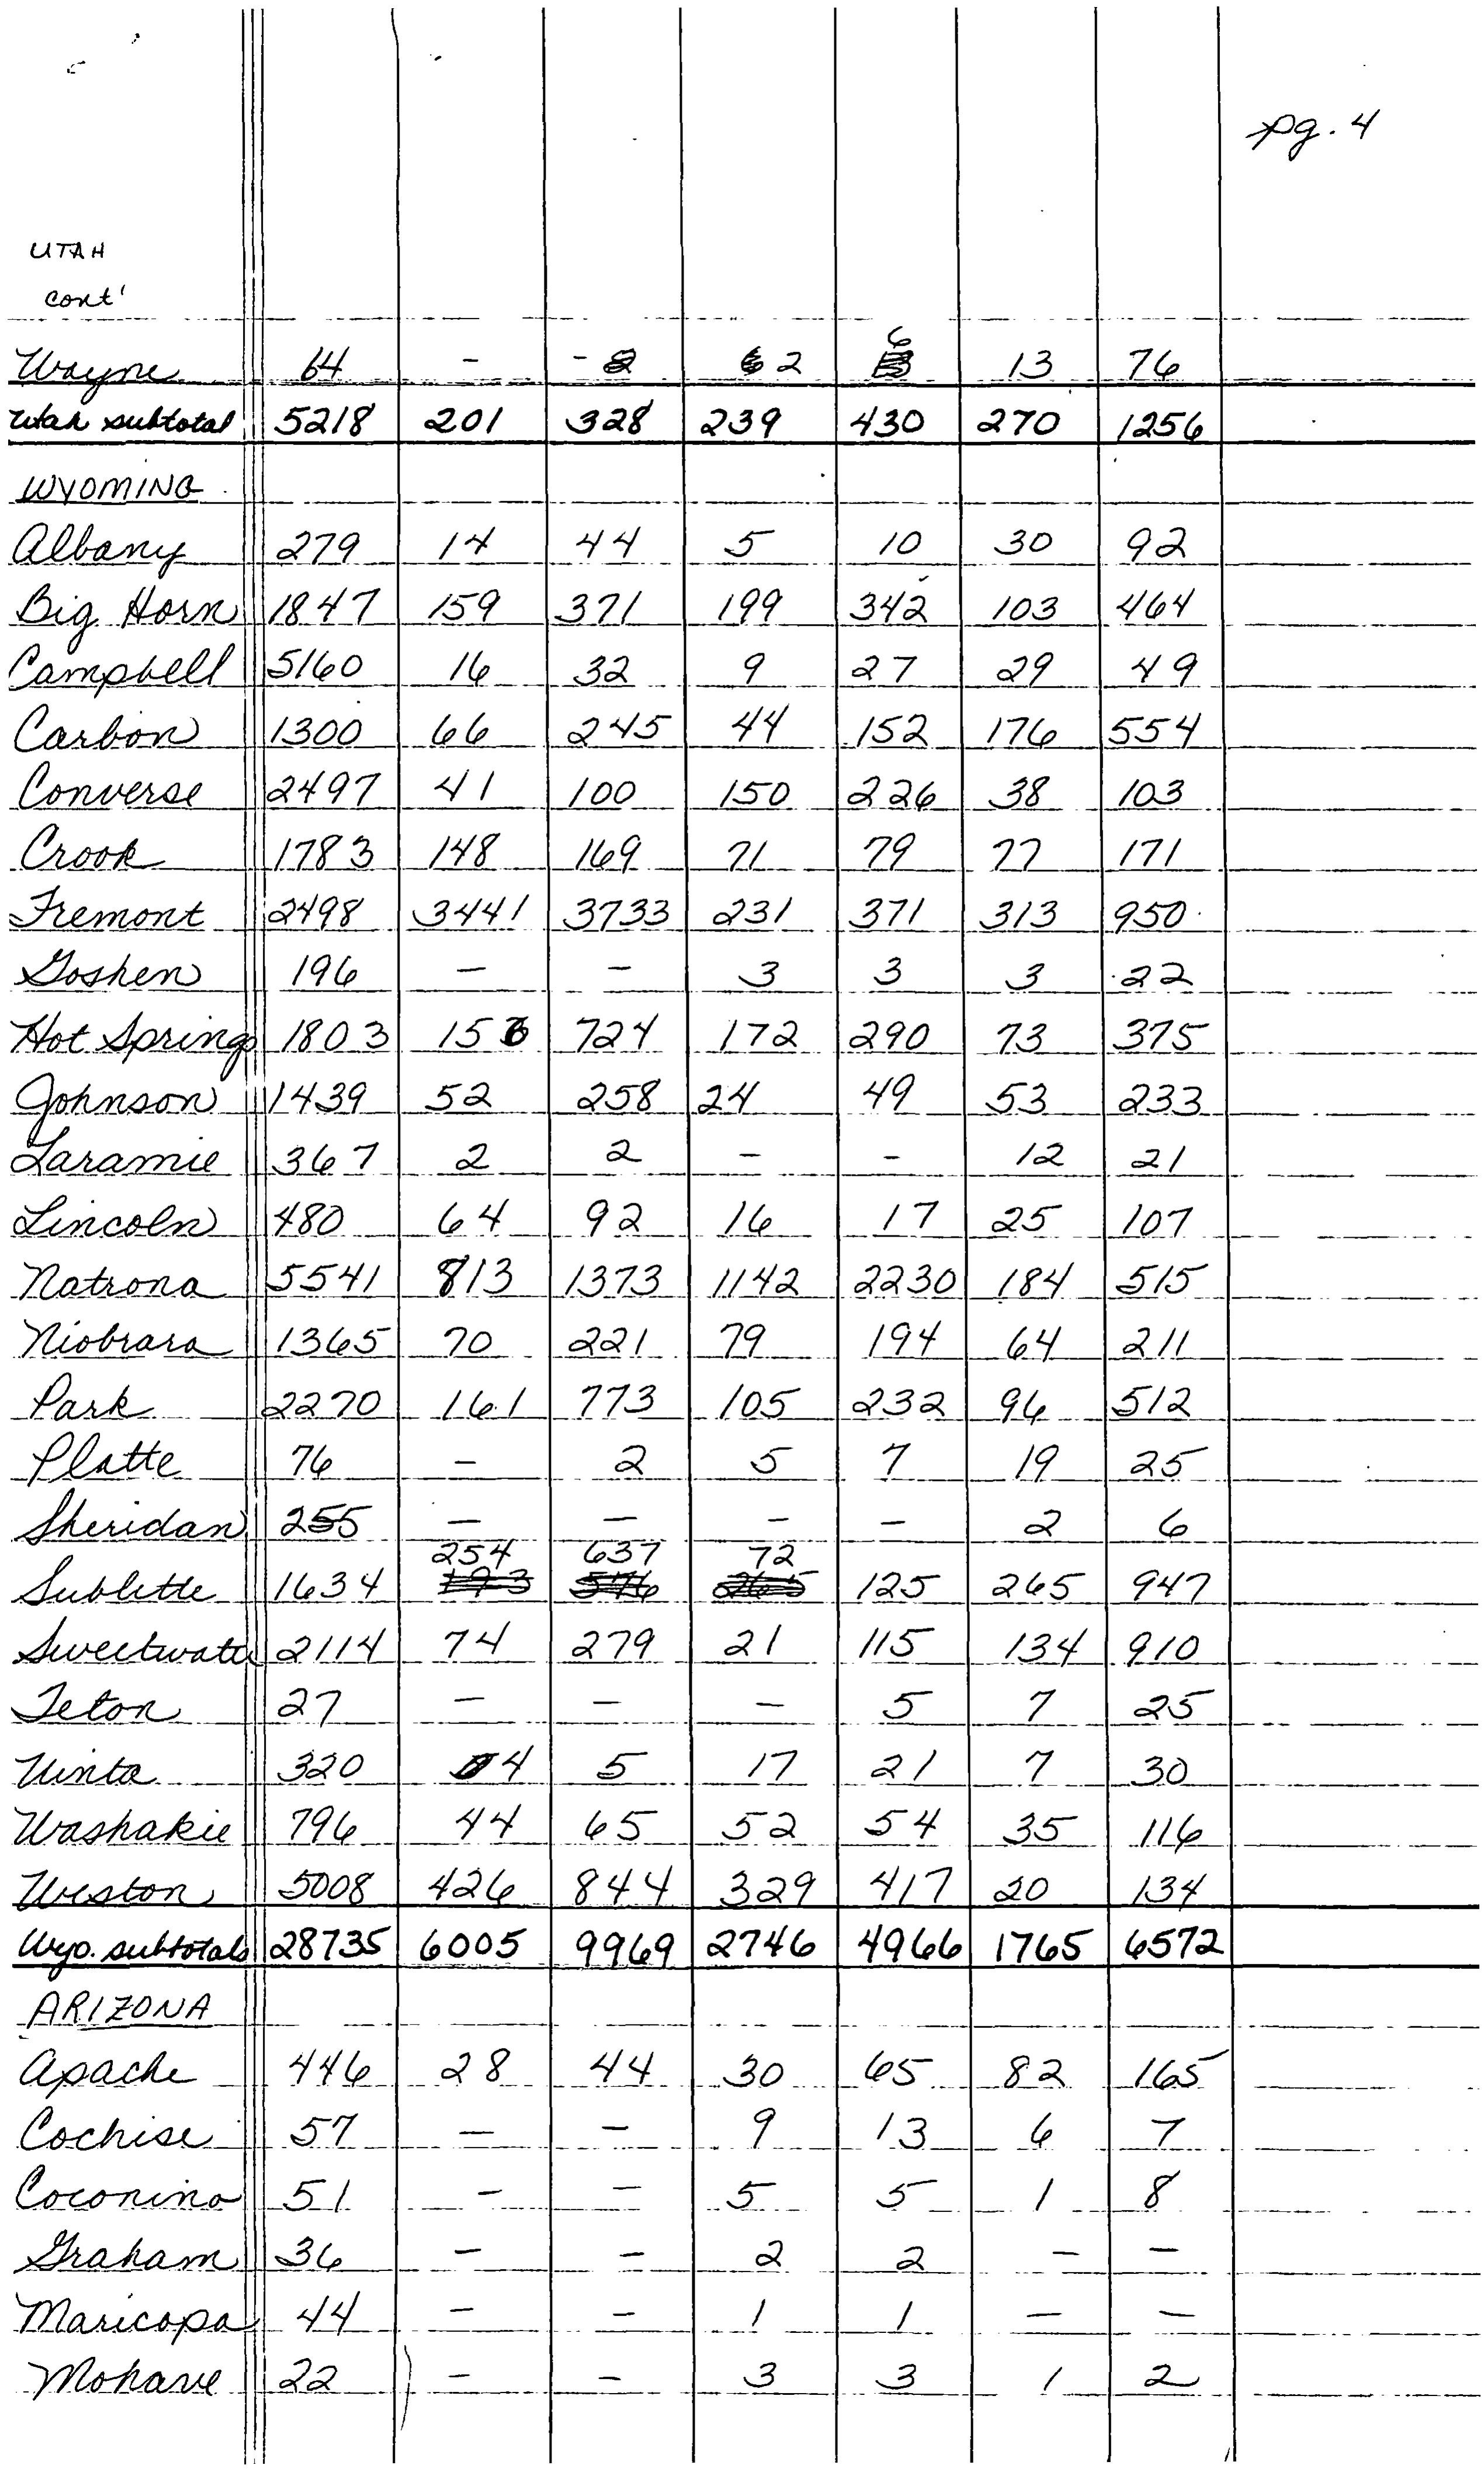 pg. 4
UTAH
cont'
Wayne 64 - - 2 6 13 76
Utah subtotal 5218 201 328 239 430 270 1256
WYOMING
Albany 279 14 44 5 10 30 92
Big Horn 1847 159 371 199 342 103 464
Campbell 5160 16 32 9 27 29 49
Carbon 1300 66 245 44 152 176 554
Converse 2497 41 100 150 226 38 103
Crook 1783 148 169 71 79 77 171
Fremont 2498 3441 3733 231 371 313 950
Goshen 196 - - 3 3 3 22
Hot Springs 1803 156 724 172 290 73 375
Johnson 1439 52 258 24 49 53 233
Laramie 367 2 2 - - 12 21
Lincoln 480 64 92 16 17 25 107
Natrona 5541 813 1373 1142 2230 184 515
Niobrara 1365 70 221 79 194 64 211
Park 2270 161 773 105 232 96 512
Platte 76 - 2 5 7 19 25
Sheridan 255 - - - - 2 6
254 637 72
Sublette 1634 193 576 265 125 265 947
Sweetwater 2114 74 279 21 115 134 910
Teton 27 - - - 5 7 25
Uinta 320 4 5 17 21 7 30
Washakie 796 44 65 52 54 35 116
Weston 5008 426 844 329 417 20 134
Wyo. subtotals 28735 6005 9969 2746 4966 1765 6572
ARIZONA
Apache 446 28 44 30 65 82 165
Cochise 57 - - 9 13 6 7
Coconino 51 - - 5 5 1 8
Graham 36 - - 2 2 - -
Maricopa 44 - - 1 1 - -
Mohave 22 - - 3 3 1 2